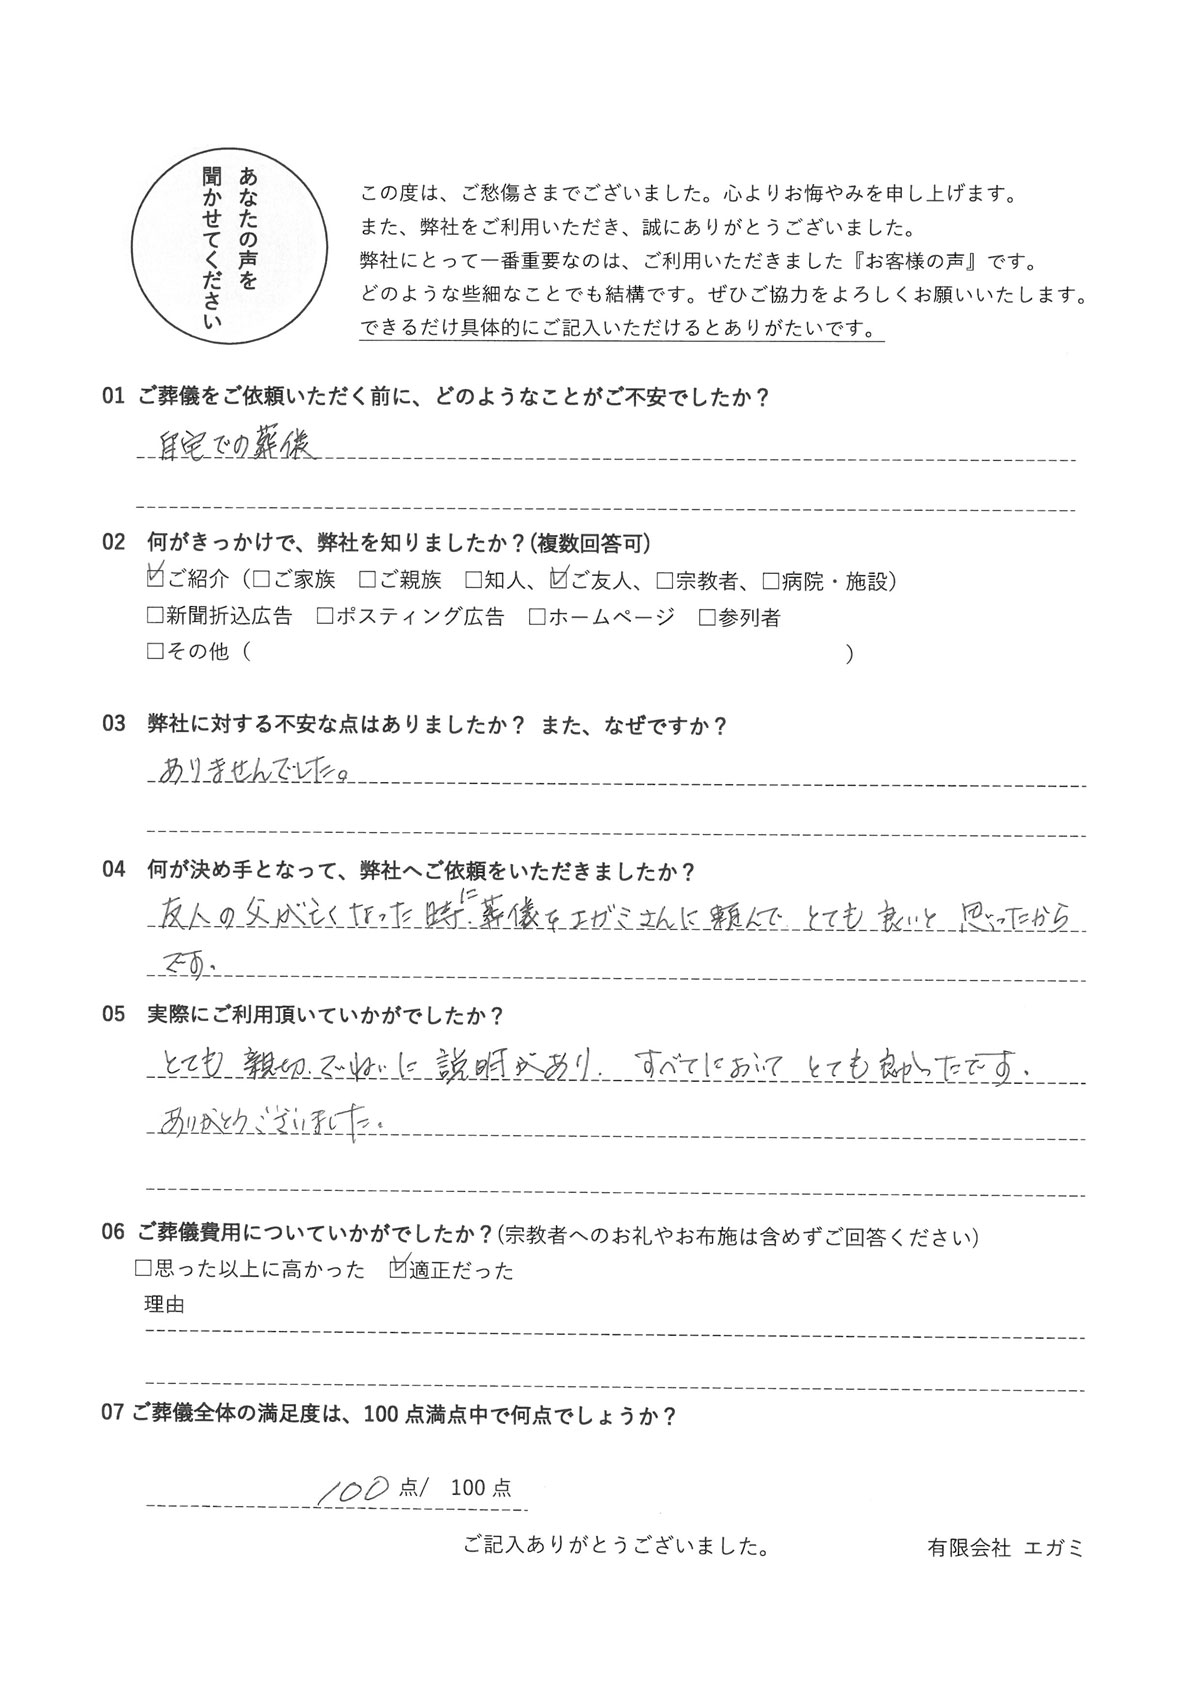 あなたの声を
聞かせてください
この度は、ご愁傷さまでございました。心よりお悔やみを申し上げます。
また、弊社をご利用いただき、誠にありがとうございました。
弊社にとって一番重要なのは、ご利用いただきました『お客様の声』です。
どのような些細なことでも結構です。ぜひご協力をよろしくお願いいたします。
できるだけ具体的にご記入いただけるとありがたいです。
01 ご葬儀をご依頼いただく前に、どのようなことがご不安でしたか？
自宅での葬儀
02 何がきっかけで、弊社を知りましたか？(複数回答可)
☑ご紹介（□ご家族 □ご親族 □知人、☑ご友人、□宗教者、□病院・施設）
□新聞折込広告 □ポスティング広告 □ホームページ □参列者
□その他（ ）
03 弊社に対する不安な点はありましたか？ また、なぜですか？
ありませんでした。
04 何が決め手となって、弊社へご依頼をいただきましたか？
友人の父が亡くなった時に、葬儀をエガミさんに頼んで とても良いと思ったから
です。
05 実際にご利用頂いていかがでしたか？
とても親切、ていねいに説明があり、すべてにおいてとても良かったです。
ありがとうございました。
06 ご葬儀費用についていかがでしたか？(宗教者へのお礼やお布施は含めずご回答ください)
□思った以上に高かった ☑適正だった
理由
07 ご葬儀全体の満足度は、100 点満点中で何点でしょうか？
100 点/ 100 点
ご記入ありがとうございました。 有限会社 エガミ